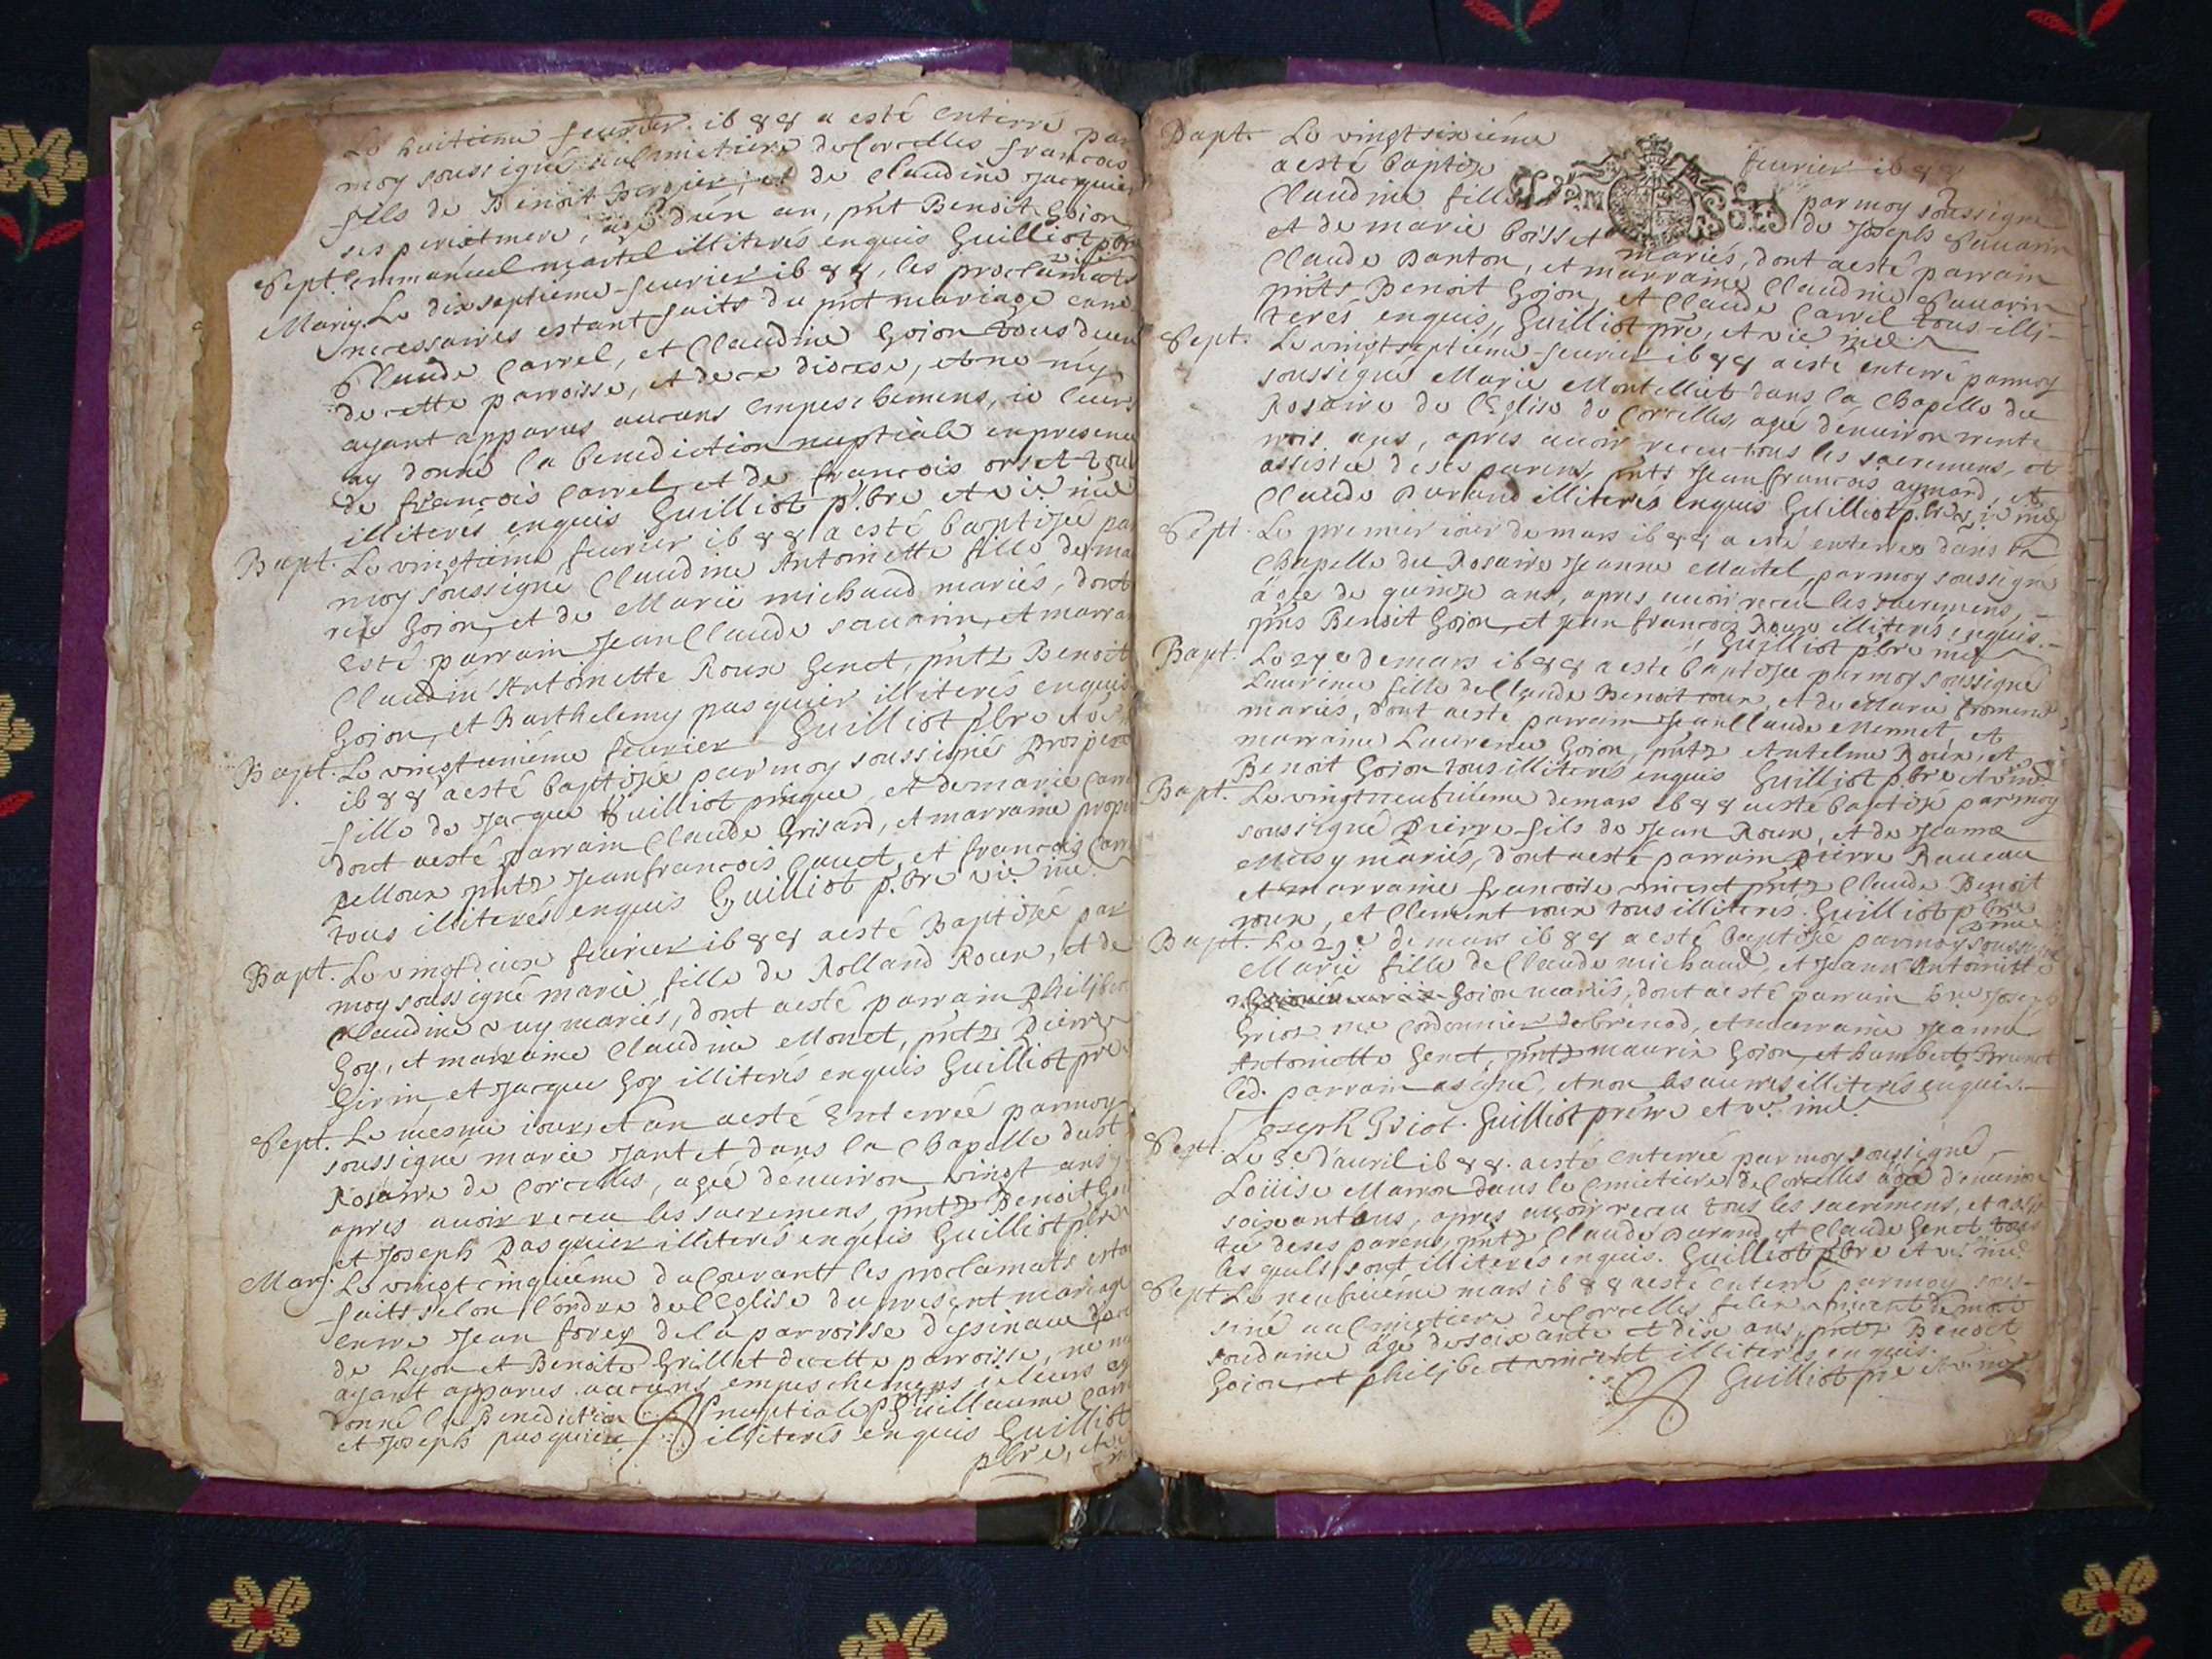 Le huitieme feurier ib88 a esté enterré par
moy soussigné au Cimietiere de Corcelles francois
fils de Benoit Bergier, et de Claudine Jacquier
ses pere et mere, agé d'un an, pnt Benoit Gojon
Sept. emmanuel martel illiterés enquis Guilliot pbre
Mariag. Le dix septieme feurier ib88, les proclamats
necessaires estant faits du pnt mariage entre
Claude Carrel, et Claudine Gojon tous deux
de cette parroisse, et de ce diocese, et ne m'y
ayant apparus aucuns empeschemens, ie leurs
ay donné la benediction nuptiale en presence
de françois Carrel, et de francois orset tous
illiterés enquis Guilliot p.bre et vic. ind
Bapt. Le vingtieme feurier ib88 a esté baptisée par
moy soussigné Claudine Antoinette fille de
Gojon, et de Marie michaud mariés, dont
esté parrain Jean Claude sauarin, et marra
Antoinette Roux Genet, pntz Benoit
Gojon, et Barthelemy pasquier illiterés enquis
Guilliot pbre et vic
Bapt. Le vingtunième feurier
ib88 a esté baptisée par moy soussigné Prospere
fille de Jacque Guilliot pinque, et de marie Carre
dont a esté parrain Claude Grisard, et marraine prospe
pelloux pntz Jean francois Cauet, et francois Carre
tous illiterés enquis Guilliot p.bre vic ind
Bapt. Le vingtdeux feurier ib88 a esté Baptisée par
moy soussigné marie fille de Rolland Roux, et de
Claudine mariés, dont a esté parrain Philiber
Goy, et marraine Claudine Monet, pntz Pierre
Girin, et Jacque Goy illiterés enquis Guilliot pre
Sept. Le mesme iour, et an a esté Enterrée par moy
soussigné marie Jantet dans la Chapelle du st
Rosaire de Corcelles, agée d'enuiron vingt ans
apres auoir receu les sacremens, pntz Benoit Go
et Joseph Pasquier illiterés enquis Guilliot pbre
Mariag. Le vingtcinquième du Courant les proclamats estan
faits selon l'ordre de l'Eglise du present mariage
entre Jean forey de la parroisse
de Lyon et Benoite Grillet de cette parroisse, ne m
ayant apparus aucuns empeschemens ie leurs ay
donné la Benediction nuptiale Guillaume Carre
et Joseph pasquier illiterés enquis Guilliot
pbre, et
Bapt. Le vingtsixiéme feurier ib88
a esté baptisée par moy soussigné
Claudine fille de Joseph Sauarin
et de marie boisset mariés, dont a esté parrain
Claude Danton, et marraine Claudine Sauarin
pnts Benoit Gojon, et Claude Carrel tous illi-
terés enquis, Guilliot pre, et vic ind.
Sept. Le vingtseptiéme feurier ib88 a esté enterré par moy
soussigné Marie Montelliet dans la Chapelle du
Rosaire de l'Eglise de Corcelles, agée d'enuiron trente
trois ans, apres auoir receu tous les sacremens, et
assistée de ses parens, pnts Jean francois aymard, et
Claude Durand illiterés enquis Guilliot p.bre vic ind
Sept. Le premier iour de mars ib88 a esté enterrée dans la
Chapelle du Rosaire Jeanne Martel, par moy soussigné
âgée de quinze ans, apres auoir receu les sacremens, -
pns Benoit Gojon, et Jean francois Roux illiterés enquis. -
Guilliot pbre ind
Bapt. Le 27e de mars ib88 a esté baptisée par moy soussigné
Laurence fille de Claude Benoit roux, et de Marie froment
mariés, dont a esté parrain Jean Claude Mennet, et
marraine Laurence Gojon, pntz Antelme Roux, et
Benoit Gojon tous illiterés enquis Guilliot p.bre et v ind
Bapt. Le vingtneufuieme de mars ib88 a esté baptisé par moy
soussigné Pierre fils de Jean Roux, et de Jeanne
Musy mariés, dont a esté parrain Pierre Raueau
et marraine francoise vincent pntz Claude Benoit
roux, et Clement roux tous illiterés. Guilliot pbre
ind
Bapt. Le 29e de mars ib88 a esté baptisée par moy soussigné
Marie fille de Claude michaud, et Jeanne Antoinette
Gojon mariés, dont a esté parrain hre Joseph
Griot me Cordonnier de brenod, et marraine Jeanne
Antoinette Genet, pntz maurix Gojon, et humbert Brunet
led. parrain a signé, et non les autres illiterés enquis. -
Joseph Griot. Guilliot prétre et vic. ind.
Sept. Le 5e d'auril ib88. a esté enterrée par moy soussigné
Loüise Marron dans le Cimietiere de Corcelles âgée d'enuiron
soixant ans, apres auoir receu tous les sacremens, et assis
tée de ses parens, pntz Claude Durand et Claude Genet tous
lesquels sont illiterés enquis. Guilliot pbre et vic ind
Sept. Le neufuiéme mars ib88 a esté enterré par moy sous-
siné au Cimietiere de Corcelles vincent de mort
soudaine âgé de soixante et dix ans, pntz Benoit
Gojon, et philibert vincent illiterés enquis.
Guilliot pre et v. ind